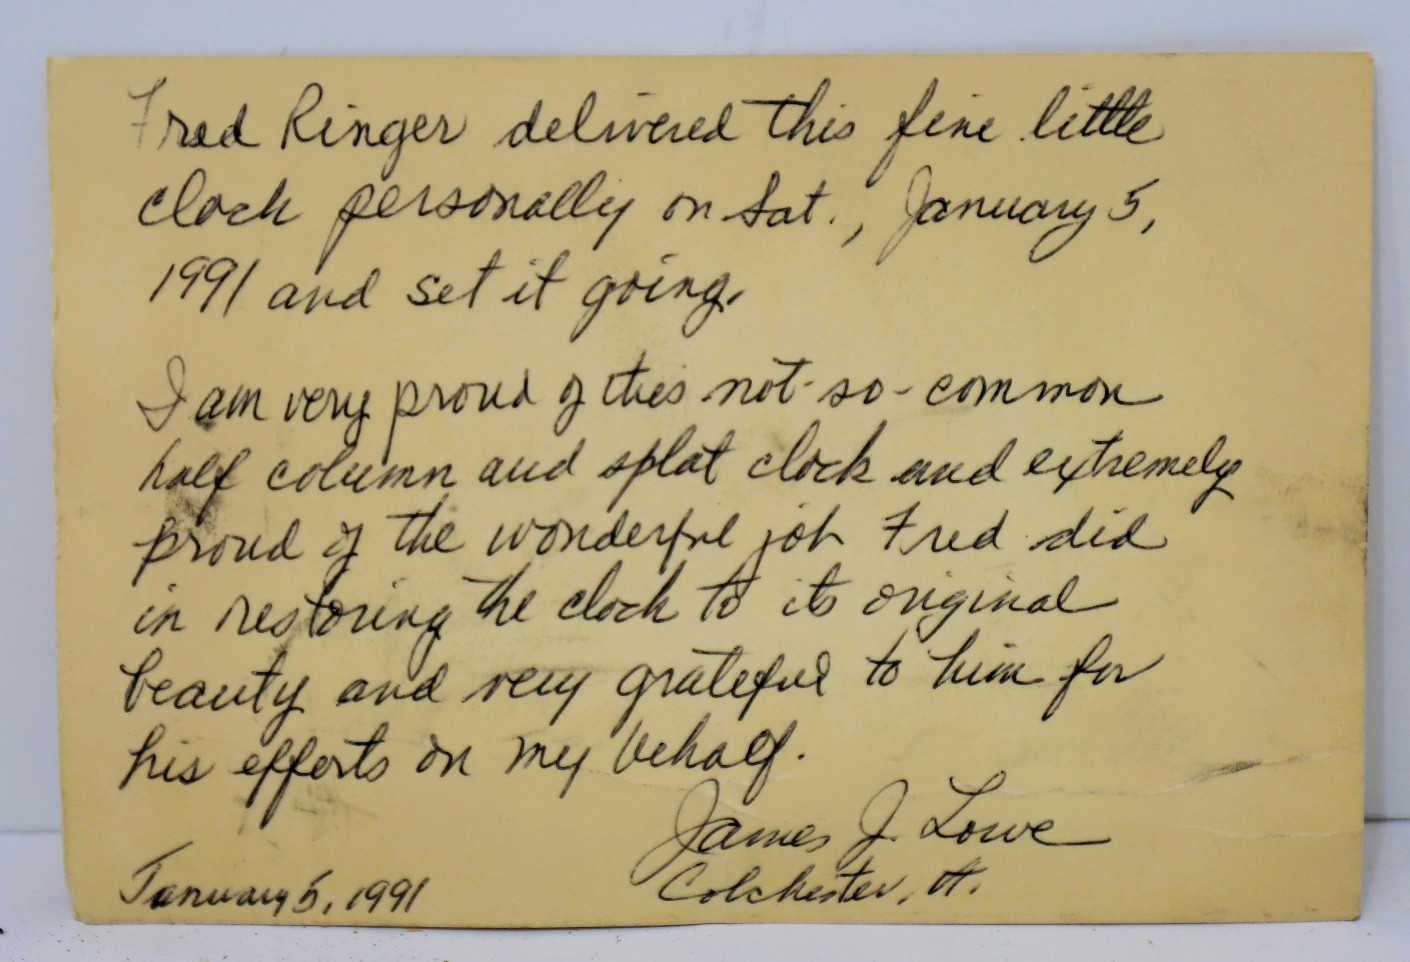 Fred Ringer delivered this fine little
clock personally on Sat., January 5,
1991 and set it going.
I am very proud of this not-so-common
half column and splat clock and extremely
proud of the wonderful job Fred did
in restoring the clock to its original
beauty and very grateful to him for
his efforts on my behalf.
James J. Lowe
Colchester,
January 5, 1991